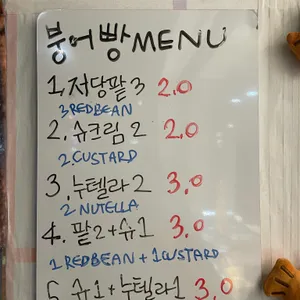 붕어빵 MENU
1. 저당팥 3 2.0
3 REDBEAN
2. 슈크림 2 2.0
2. CUSTARD
3. 누텔라 2 3.0
2 NUTELLA
4. 팥2+슈1 3.0
1 REDBEAN + 1 CUSTARD
5. 슈1+누텔라1 3.0